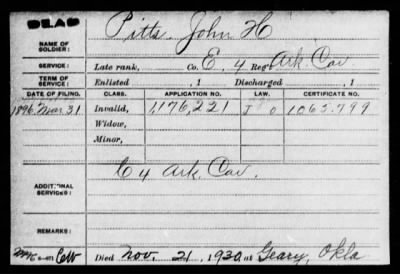 DEAD
NAME OF SOLDIER: Pitts, John H
SERVICE: Late rank, Co. E, 4 Reg't Ark Cav.
TERM OF SERVICE: Enlisted , 1 Discharged , 1
DATE OF FILING. CLASS. APPLICATION NO. LAW. CERTIFICATE NO.
1896, Mar 31 Invalid, 1,176,221 J O 1065.799
Widow,
Minor,
ADDITIONAL SERVICES: C 4 Ark. Cav.
REMARKS:
Died Nov. 21, 1930, at Geary, Okla